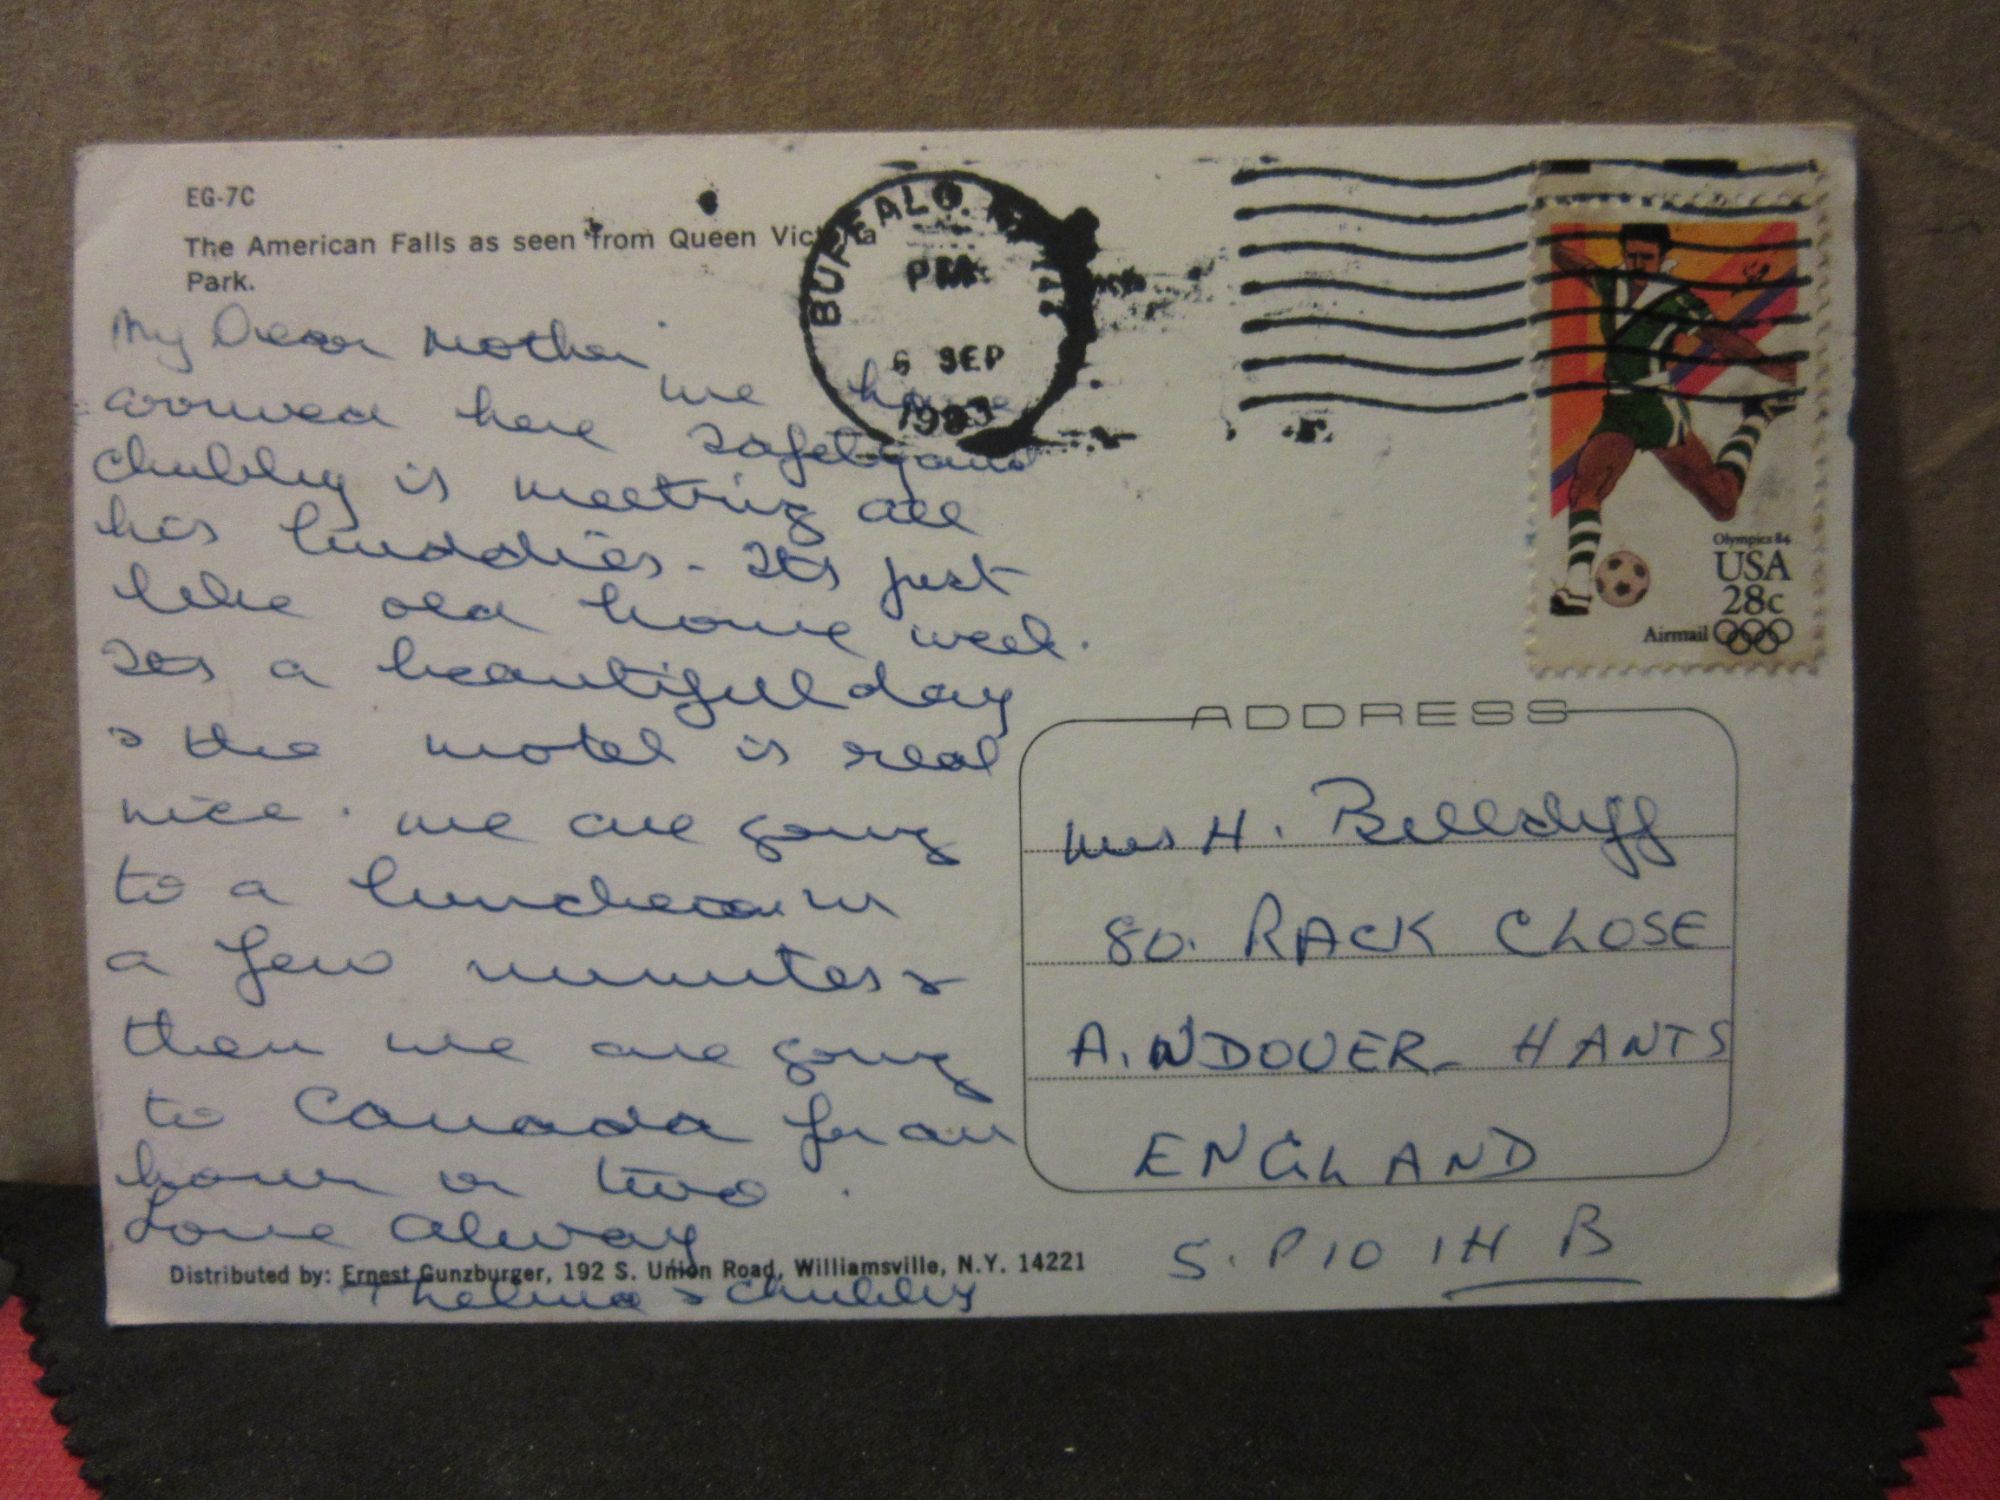 EG-7C
The American Falls as seen from Queen Victoria
Park.
BUFFALO, N.Y.
PM
6 SEP
1983
Olympics 84
USA
28c
Airmail
My Dear Mother
we have
arrived here safely and
Chubby is meeting all
his buddies - Its just
like old home week.
Its a beautiful day
& the motel is real
nice. we are going
to a luncheon in
a few minutes &
then we are going
to Canada for an
hour or two.
Love Always
Thelma & Chubby
Distributed by: Ernest Gunzburger, 192 S. Union Road, Williamsville, N.Y. 14221
ADDRESS
Mrs H.
80. RACK CLOSE
A.NDOVER- HANTS
ENGLAND
S. P10 1H B